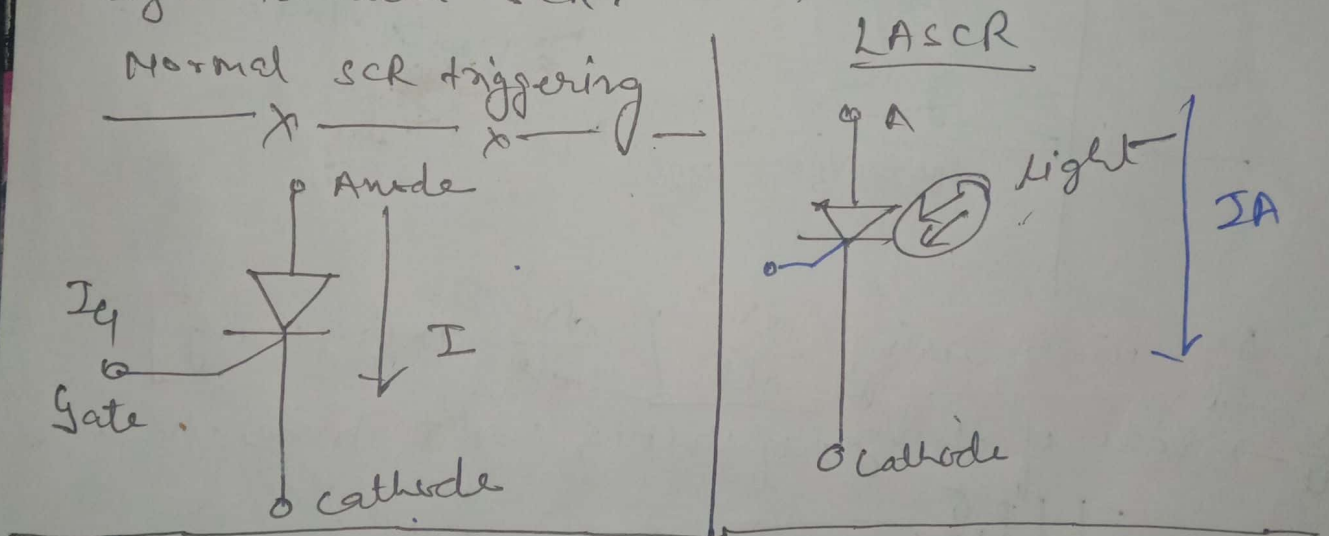 Normal SCR triggering
Anode
IG
I
Gate
Cathode
LASCR
A
Light
IA
Cathode